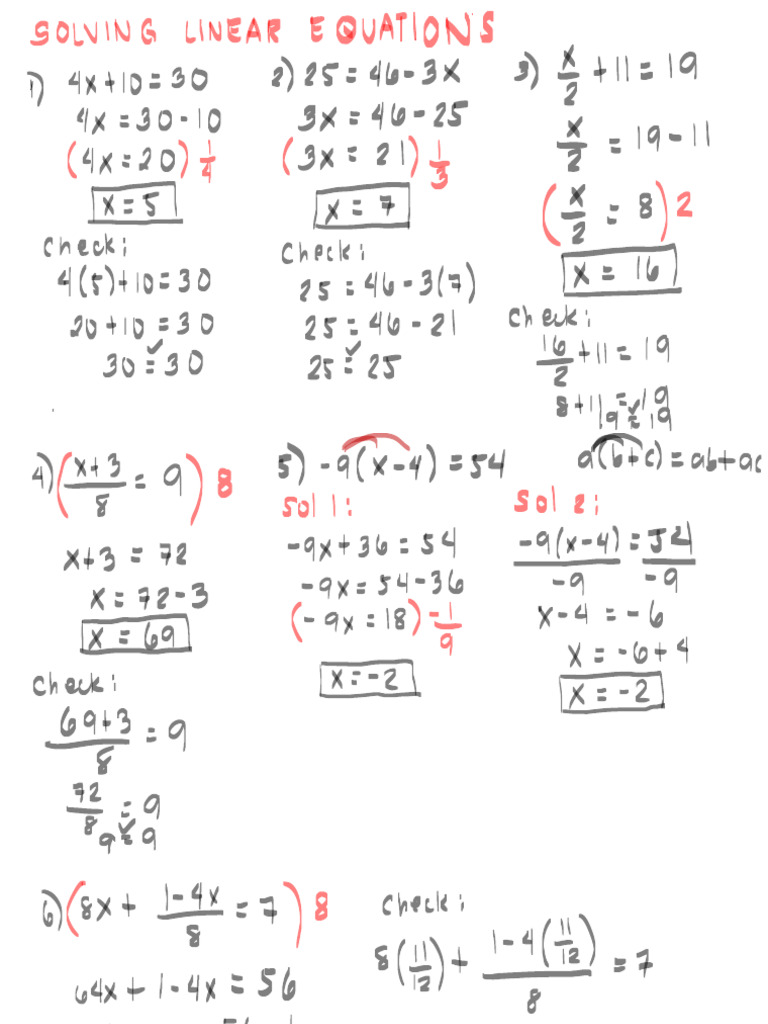 SOLVING LINEAR EQUATIONS
1) 4x+10=30
4x=30-10
(4x=20) 1/4
x=5
Check:
4(5)+10=30
20+10=30
30=30 ✓
2) 25=46-3x
3x=46-25
(3x=21) 1/3
x=7
Check:
25=46-3(7)
25=46-21
25=25 ✓
3) x/2+11=19
x/2=19-11
(x/2=8)2
x=16
Check:
16/2+11=19
8+11=19
19=19 ✓
4) ((x+3)/8=9)8
x+3=72
x=72-3
x=69
Check:
(69+3)/8=9
72/8=9
9=9 ✓
5) -9(x-4)=54
a(b+c)=ab+ac
Sol 1:
-9x+36=54
-9x=54-36
(-9x=18) -1/9
x=-2
Sol 2:
-9(x-4)/-9=54/-9
x-4=-6
x=-6+4
x=-2
6) (8x+(1-4x)/8=7)8
64x+1-4x=56
Check:
8(11/12)+(1-4(11/12))/8=7